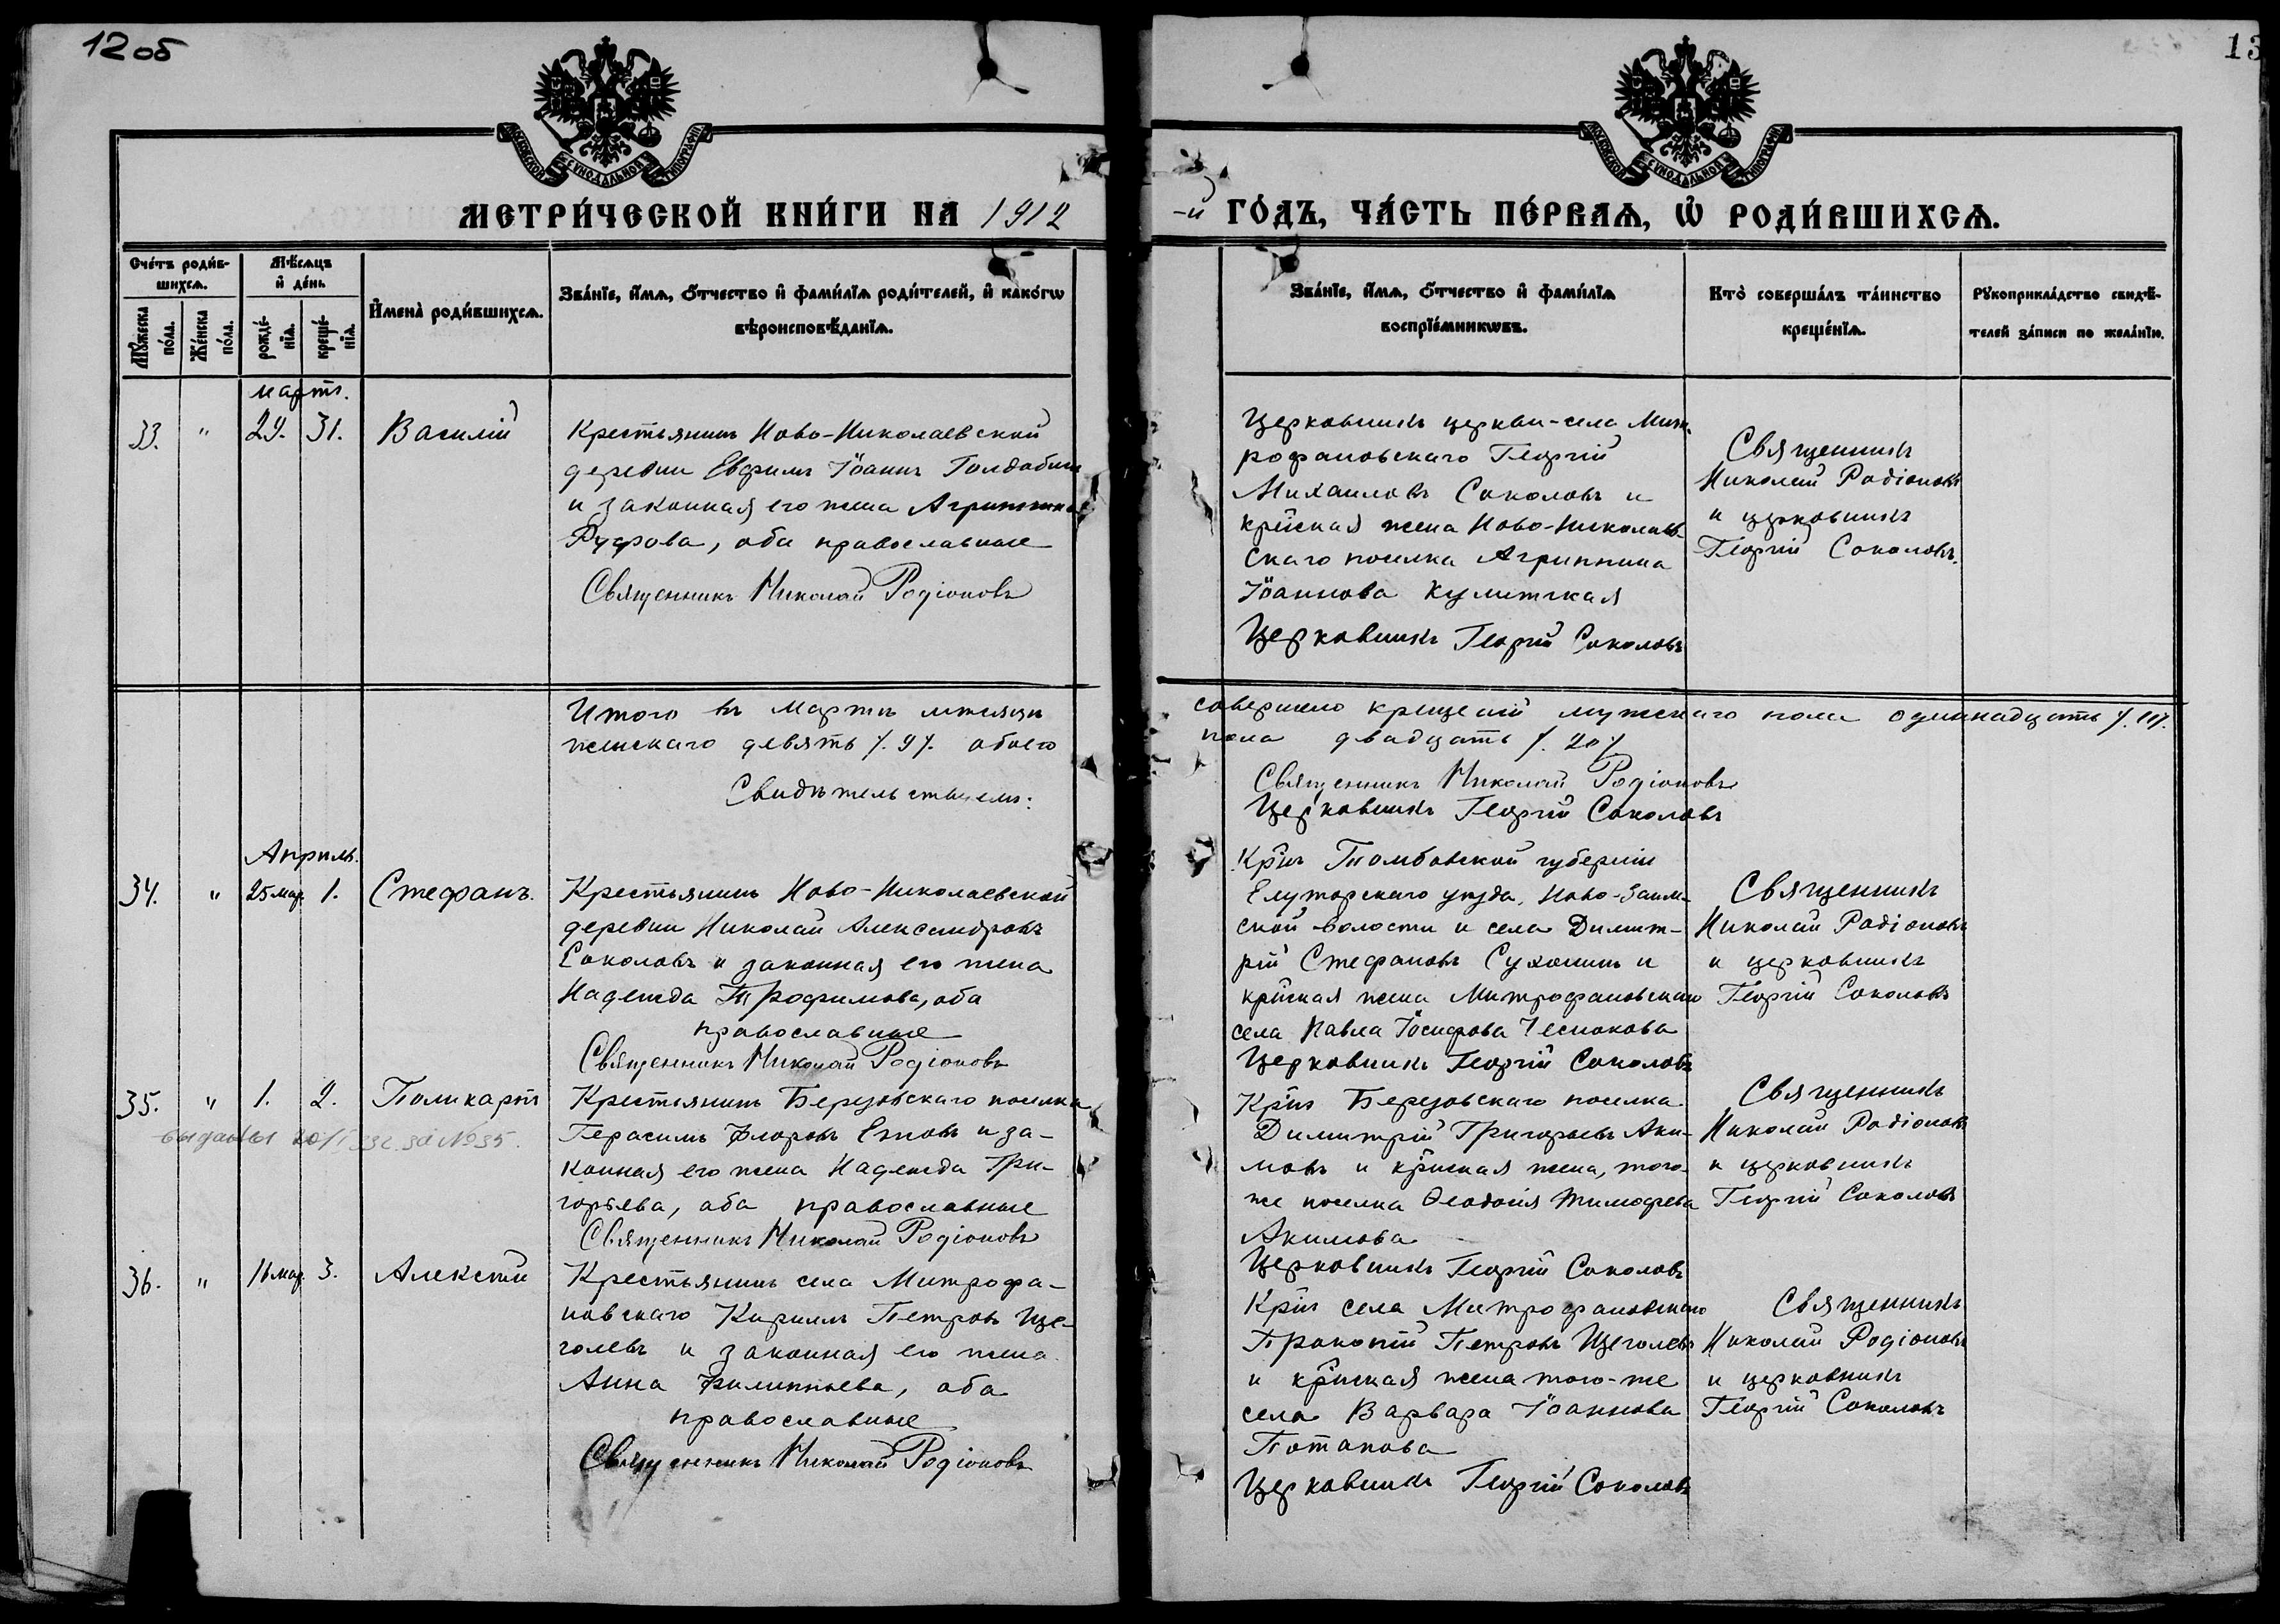 12 об
13
МОСКОВСКОЙ СѴНОДАЛЬНОЙ ТИПОГРАФІИ
МОСКОВСКОЙ СѴНОДАЛЬНОЙ ТИПОГРАФІИ
МЕТРИ́ЧЕСКОЙ КНИ́ГИ НА 1912
-й ГО́ДЪ, ЧА́СТЬ ПЕ́РВАѦ, Ѡ РОДИ́ВШИХСѦ.
Сче́тъ роди́в-
шихсѧ.
Мꙋ́жеска по́ла.
Же́нска по́ла.
Мѣ́сѧцъ
и де́нь
рожде́-
нїѧ.
креще́-
нїѧ.
И҆мена̀ роди́вшихсѧ.
Зва́нїе, и҆́мѧ, ѻ҆́тчество и҆ фами́лїѧ роди́телей, и҆ како́гѡ
вѣроисповѣ́данїѧ.
Зва́нїе, и҆́мѧ, ѻ҆́тчество и҆ фами́лїѧ
воспрїе́мникѡвъ.
Кто̀ соверша́лъ та́инство
креще́нїѧ.
Рꙋкоприкла́дство свидѣ́-
телей за́писи по жела́нїю.
мартъ.
33. " 29. 31. Василій
Крестьянинъ Ново-Николаевской
деревни Евфимъ Іоаннъ Голдобинъ
и законная его жена Агриппина
Руфова, оба православные
Священникъ Николай Родіоновъ
Церковникъ церкви-села Мит-
рофановскаго Георгій
Михаиловъ Соколовъ и
кр̃ская жена Ново-Николаев-
скаго поселка Агриппина
Іоаннова
Церковникъ Георгій Соколовъ
Священникъ
Николай Родіоновъ
и церковникъ
Георгій Соколовъ.
Итого въ Мартѣ мѣсяцѣ
совершено крещеній мужскаго пола одиннадцать /.11/.
женскаго девять /.9/. обоего
пола двадцать /.20/
Свидѣтельствуемъ:
Священникъ Николай Родіоновъ
Церковникъ Георгій Соколовъ
Апрѣль.
34. " 25 мар. 1. Стефанъ.
Крестьянинъ Ново-Николаевской
деревни Николай Александровъ
Соколовъ и законная его жена
Надежда Трофимова, оба
православные
Священникъ Николай Родіоновъ
Кр̃нъ Томбовской губерніи
Елуторскаго уѣзда, Ново-Заим-
ской волости и села Димит-
рій Стефановъ Сухонинъ и
кр̃ская жена Митрофановскаго
села Павла Іосифова Чеснокова
Церковникъ Георгій Соколовъ
Священникъ
Николай Родіоновъ
и церковникъ
Георгій Соколовъ
35. " 1. 2. Поликарпъ
выданы № 35.
Крестьянинъ Березовскаго поселка
Герасимъ Флоровъ и за-
конная его жена Надежда Гри-
горьева, оба православные
Священникъ Николай Родіоновъ
Кр̃нъ Березовскаго поселка
Димитрій Григорьевъ Аки-
мовъ и кр̃ская жена, того-
же поселка Ѳеодосія Тимофеева
Акимова
Церковникъ Георгій Соколовъ
Священникъ
Николай Родіоновъ
и церковникъ
Георгій Соколовъ
36. " 16 мар. 3. Алексѣй
Крестьянинъ села Митрофа-
новскаго Кириллъ Петровъ Ще-
голевъ и законная его жена
Анна Филиппьева, оба
православные
Священникъ Николай Родіоновъ
Кр̃нъ села Митрофановскаго
Прокопій Петровъ Щеголевъ
и кр̃ская жена того-же
села Варвара Іоаннова
Потапова
Церковникъ Георгій Соколовъ
Священникъ
Николай Родіоновъ
и церковникъ
Георгій Соколовъ